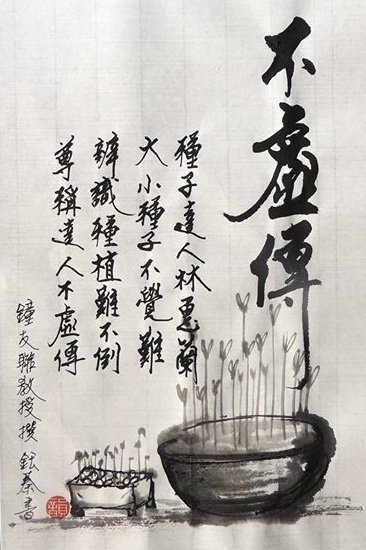 不虛傳
種子達人林惠蘭
大小種子不覺難
辨識種植難不倒
尊稱達人不虛傳
鐘友聯教授撰 鈺泰書